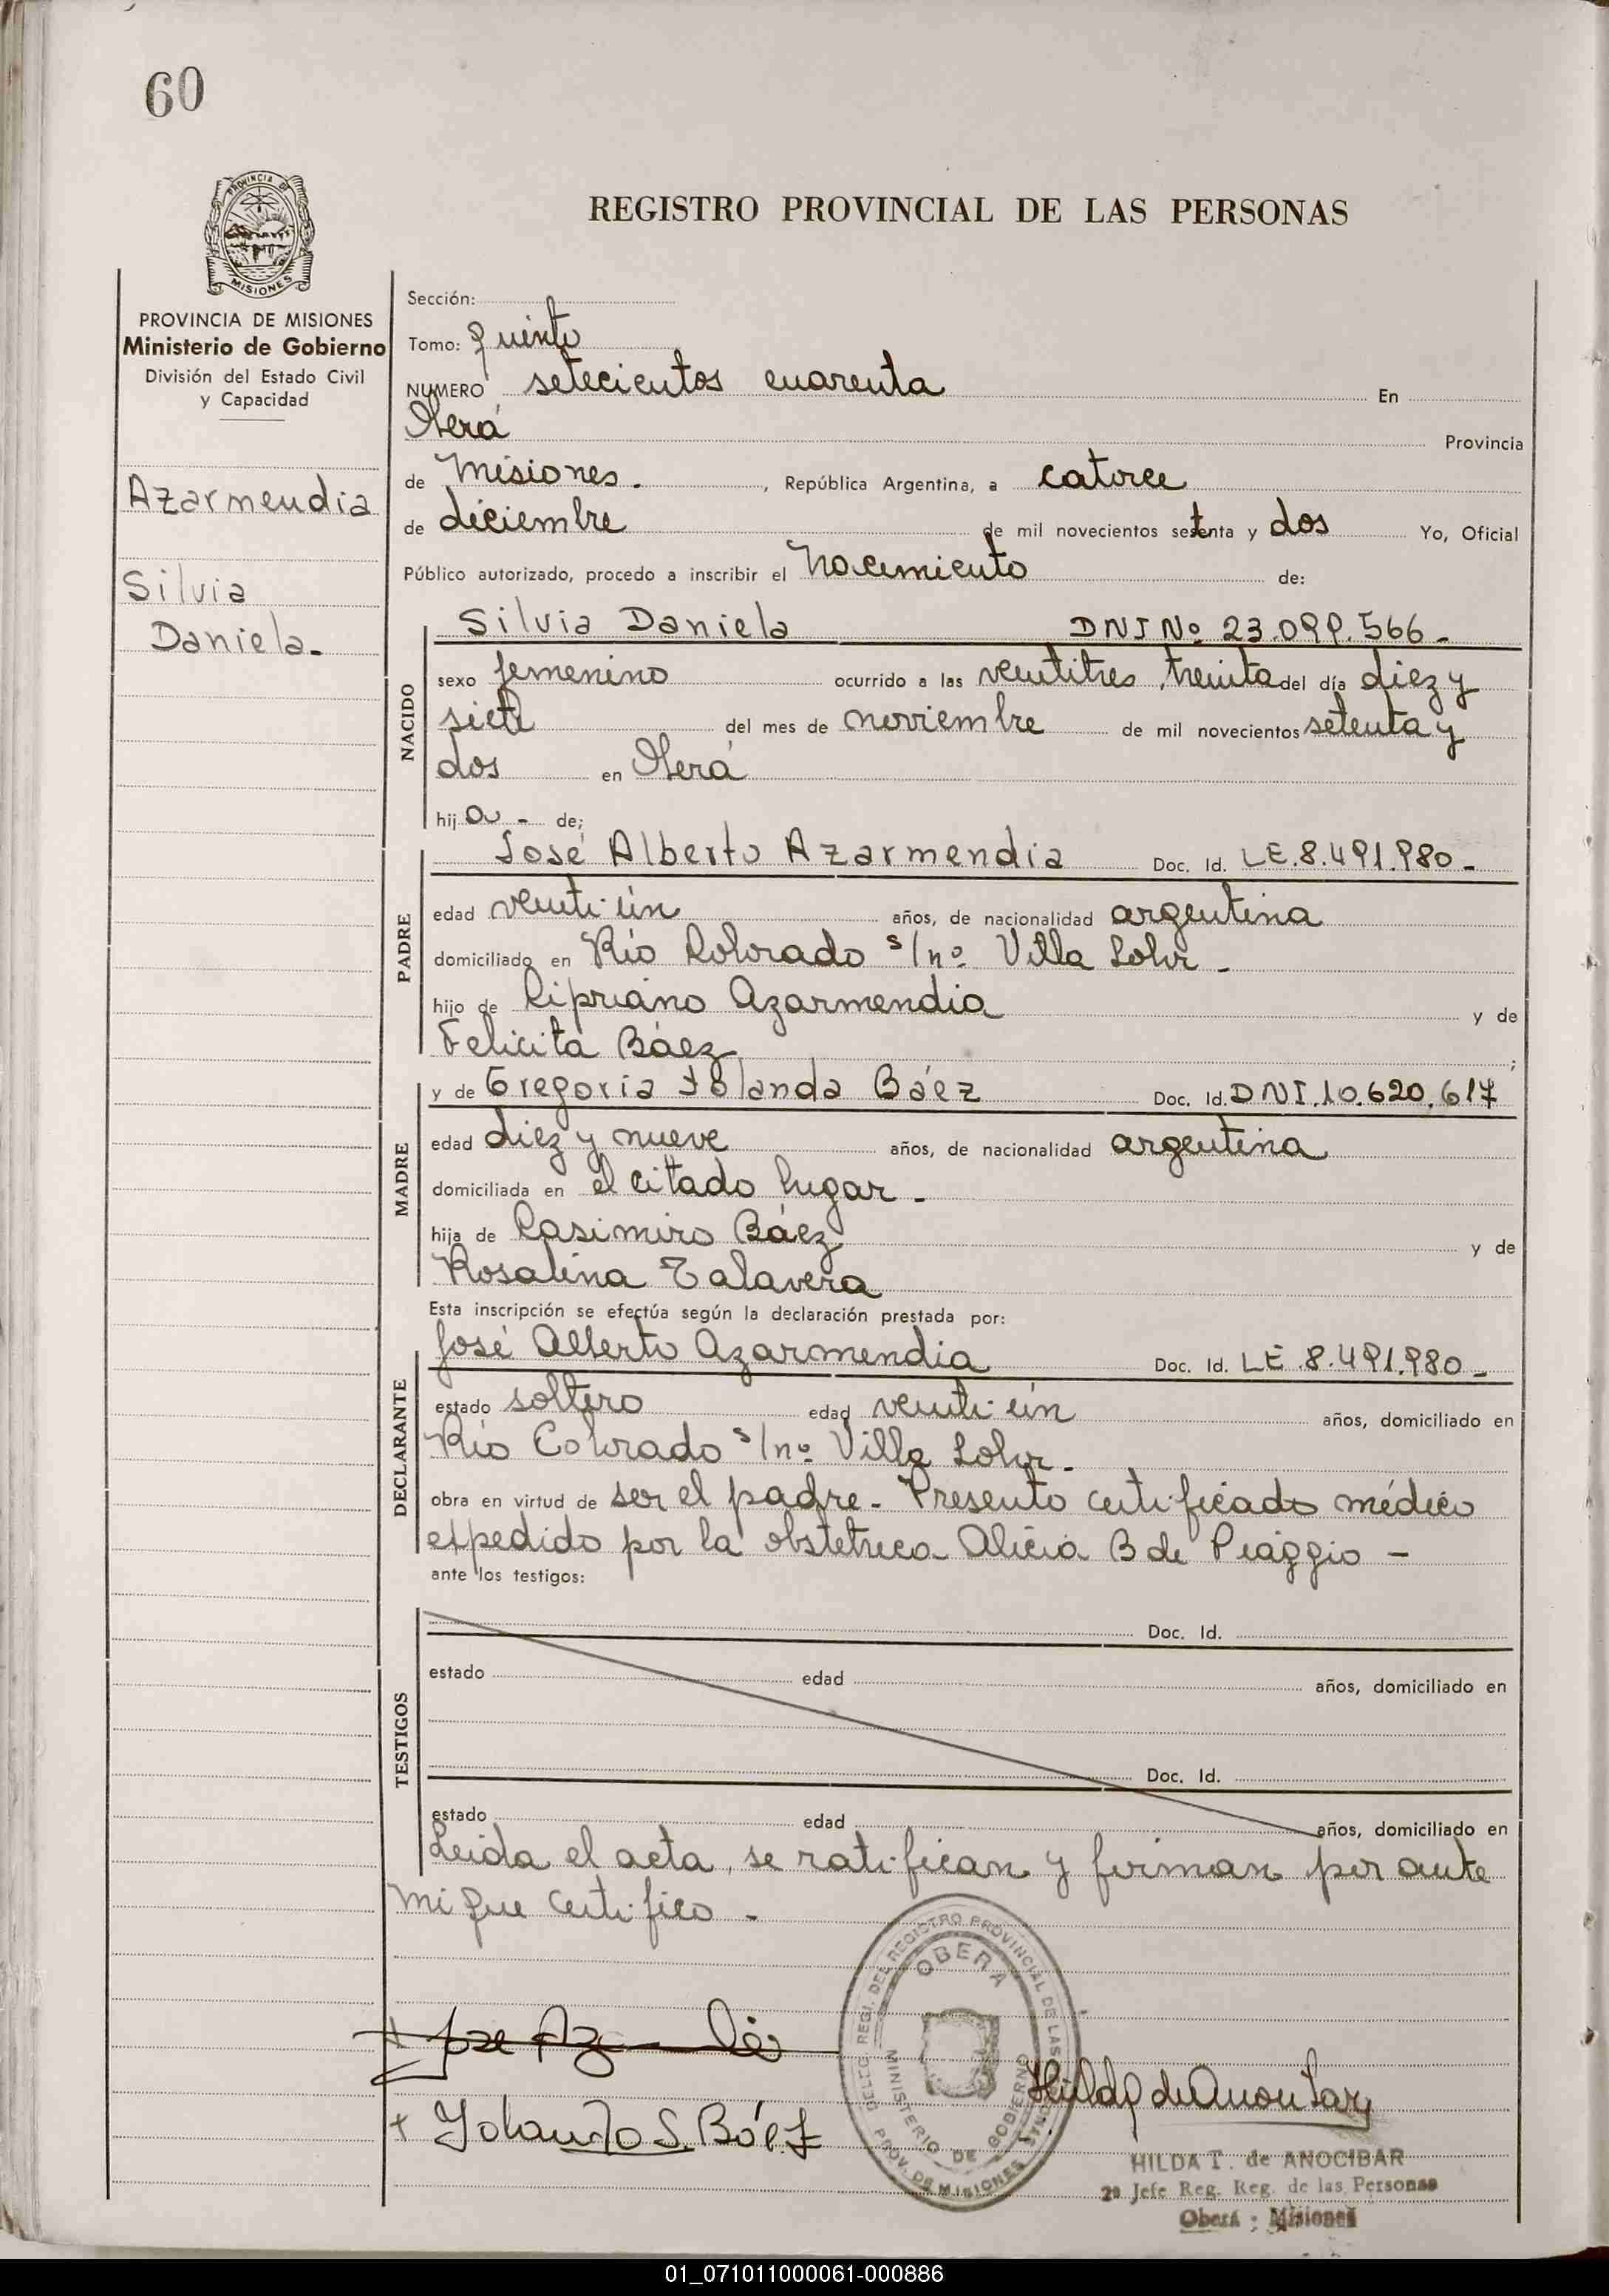 60
PROVINCIA DE
MISIONES
REGISTRO PROVINCIAL DE LAS PERSONAS
PROVINCIA DE MISIONES
Ministerio de Gobierno
División del Estado Civil
y Capacidad
Azarmendia
Silvia
Daniela.
Sección:
Tomo: Quinto
NUMERO setecientos cuarenta En
Oberá Provincia
de Misiones. , República Argentina, a catorce
de diciembre de mil novecientos setenta y dos Yo, Oficial
Público autorizado, procedo a inscribir el Nacimiento de:
NACIDO
Silvia Daniela DNI Nº 23.099.566-
sexo femenino ocurrido a las veintitres, treinta del día diez y
siete del mes de noviembre de mil novecientos setenta y
dos en Oberá
hij a - de;
PADRE
José Alberto Azarmendia Doc. Id. LE.8.491.980-
edad veinti-ún años, de nacionalidad argentina
domiciliado en Río Colorado s/nº Villa Lohr-
hijo de Cipriano Azarmendia y de
Felicita Báez ;
MADRE
y de Gregoria Yolanda Báez Doc. Id. DNI.10.620.617
edad diez y nueve años, de nacionalidad argentina
domiciliada en el citado lugar-
hija de Casimiro Báez y de
Rosalina Talavera
Esta inscripción se efectúa según la declaración prestada por:
DECLARANTE
José Alberto Azarmendia Doc. Id. LE.8.491.980-
estado soltero edad veinti-ún años, domiciliado en
Río Colorado s/nº Villa Lohr-
obra en virtud de ser el padre- Presento certificado médico
expedido por la obstetrica Alicia B de Piaggio-
ante los testigos:
TESTIGOS
Doc. Id.
estado edad años, domiciliado en
Doc. Id.
estado edad años, domiciliado en
Leida el acta, se ratifican y firman por ante
mi que certifico-
+ Jose
+ Yolanda S. Báez
DELEG. REGI. DEL REGISTRO PROVINCIAL DE LAS
OBERA
MINISTERIO DE GOBIERNO
PROV. DE MISIONES
Hilda de
HILDA T. de ANOCIBAR
2ª Jefe Reg. Reg. de las Personas
Oberá - Misiones
01_071011000061-000886